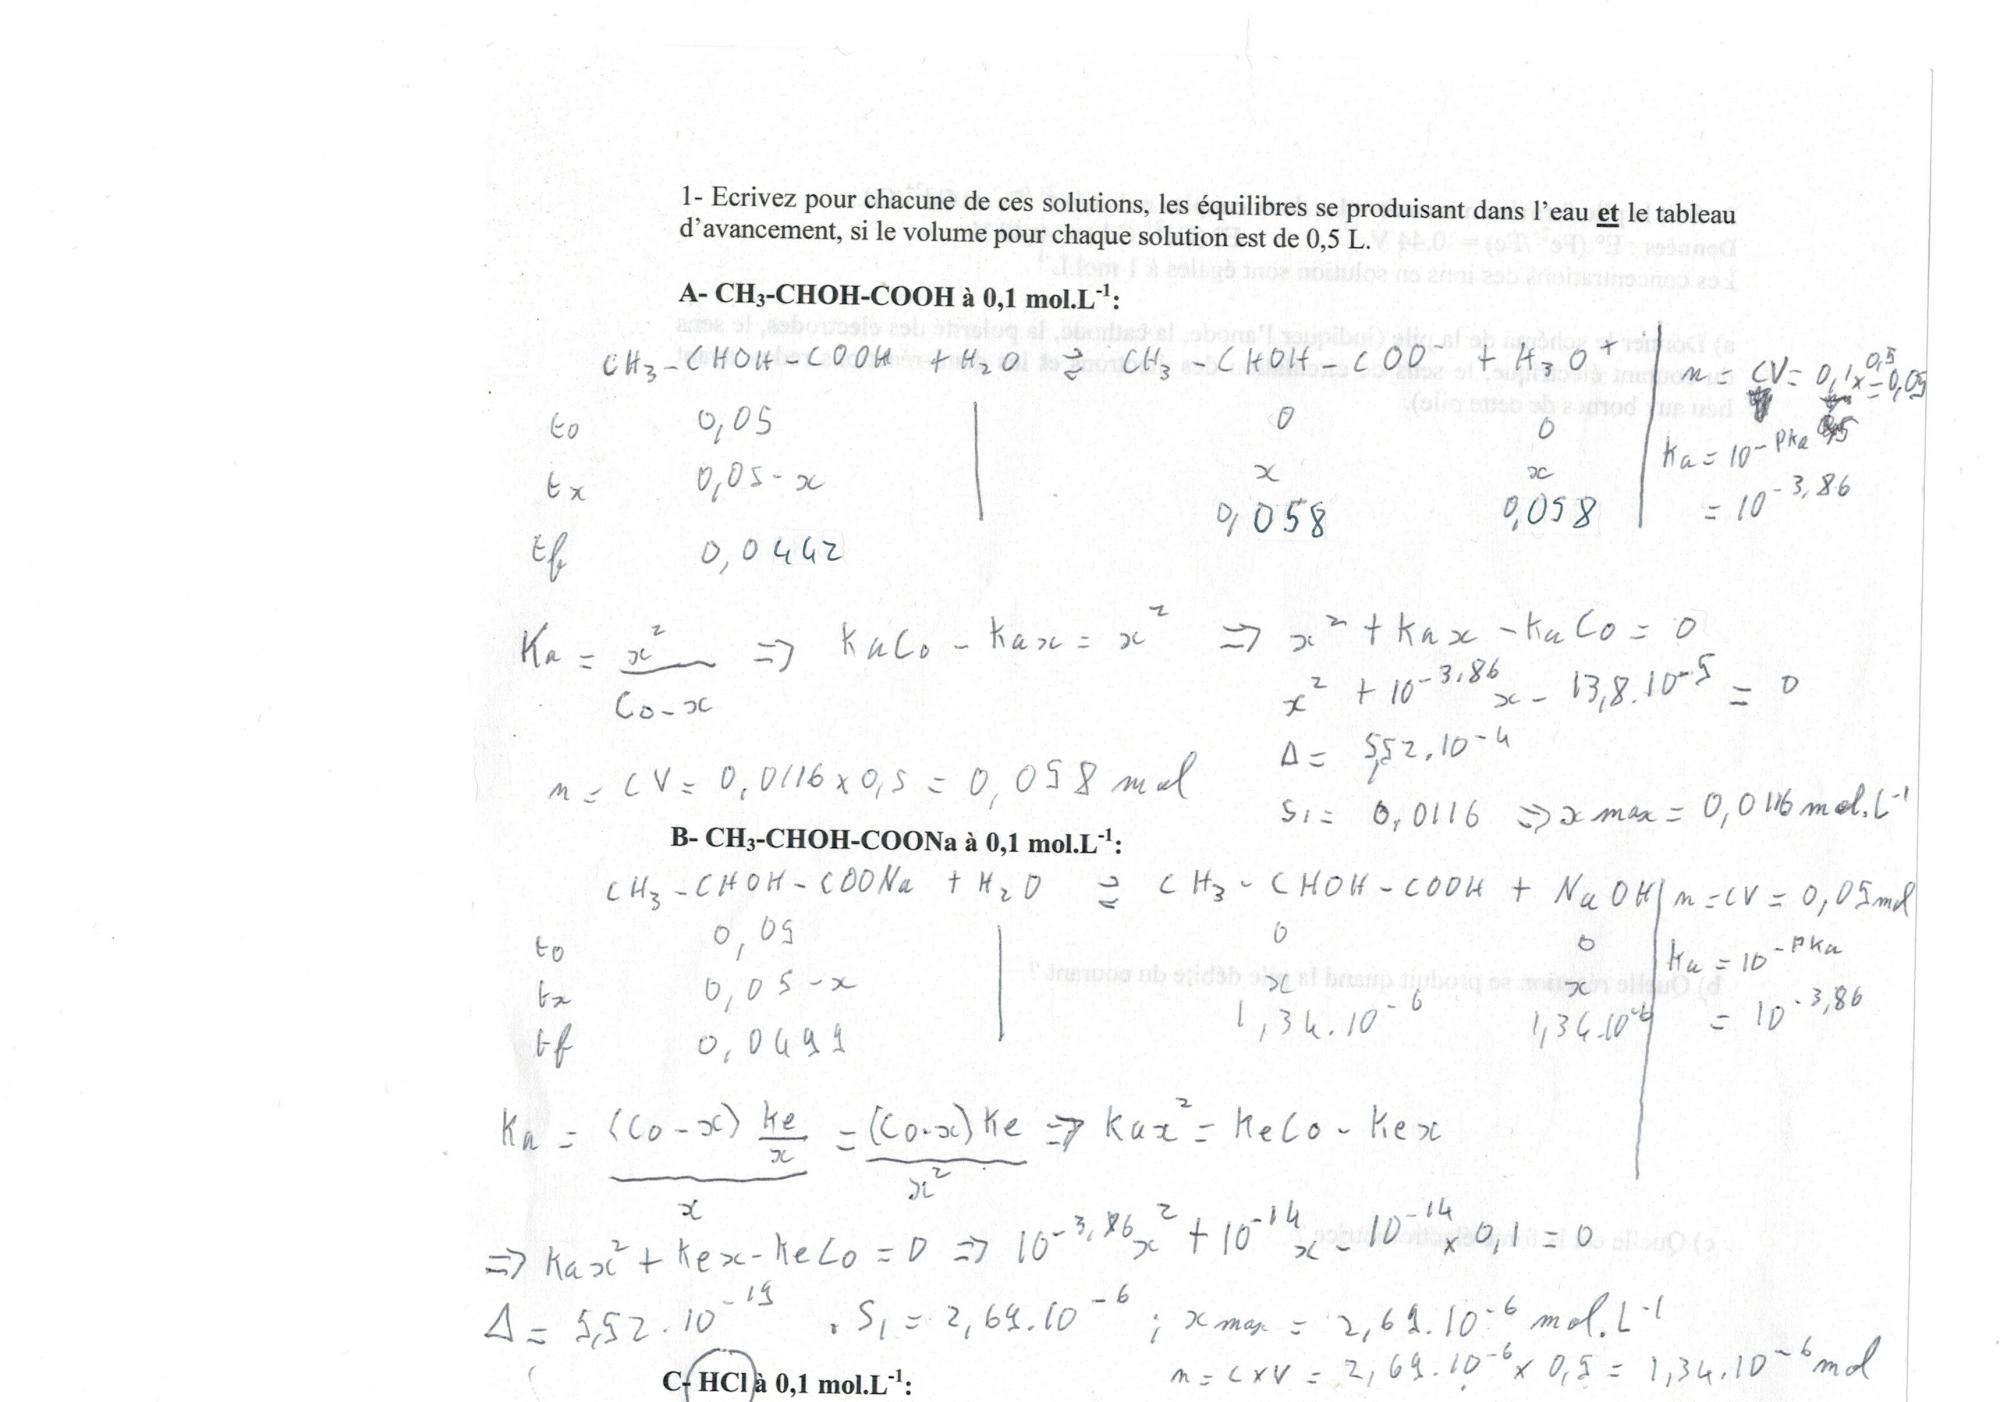 1- Ecrivez pour chacune de ces solutions, les équilibres se produisant dans l'eau et le tableau
d'avancement, si le volume pour chaque solution est de 0,5 L.
A- CH₃-CHOH-COOH à 0,1 mol.L⁻¹:
CH₃-CHOH-COOH + H₂O ⇌ CH₃-CHOH-COO⁻ + H₃O⁺
n = CV = 0,1 x 0,5 = 0,05
t0 0,05 0 0
Ka = 10^-pKa
tx 0,05-x x x
= 10^-3,86
tf 0,0442 0,058 0,058
Ka = x²/(Co-x) => KaCo - Kax = x² => x² + Kax - KaCo = 0
x² + 10^-3,86 x - 13,8.10⁻⁵ = 0
Δ = 5,52.10⁻⁴
n = CV = 0,0116 x 0,5 = 0,058 mol
S1 = 0,0116 => x max = 0,0116 mol.L⁻¹
B- CH₃-CHOH-COONa à 0,1 mol.L⁻¹:
CH₃-CHOH-COONa + H₂O ⇌ CH₃-CHOH-COOH + NaOH
n = CV = 0,05 mol
t0 0,05 0 0
Ka = 10^-pKa
tx 0,05-x x x
= 10^-3,86
tf 0,0499 1,34.10⁻⁶ 1,34.10⁻⁶
Ka = (Co-x) Ke/x / x = (Co-x)Ke / x² => Kax² = KeCo - Kex
=> Kax² + Kex - KeCo = 0 => 10^-3,86 x² + 10⁻¹⁴ x - 10⁻¹⁴ x 0,1 = 0
Δ = 5,52.10⁻¹⁹ . S1 = 2,69.10⁻⁶ ; x max = 2,69.10⁻⁶ mol.L⁻¹
n = C x V = 2,69.10⁻⁶ x 0,5 = 1,34.10⁻⁶ mol
C- HCl à 0,1 mol.L⁻¹: